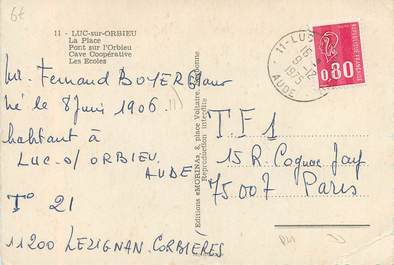 6€
11 - LUC-sur-ORBIEU
La Place
Pont sur l'Orbieu
Cave Coopérative
Les Ecoles
Mr. Fernand BOYER
né le 8 Juin 1906
habitant à
LUC-s/ ORBIEU
AUDE
T° 21
11200 LEZIGNAN-CORBIERES
Editions «MORINA», 8, place Voltaire,
Reproduction interdite
11-LU
16 H
9-12
1975
AUDE
0,80
T.F 1
15 R. Cognac Jay
75007 Paris